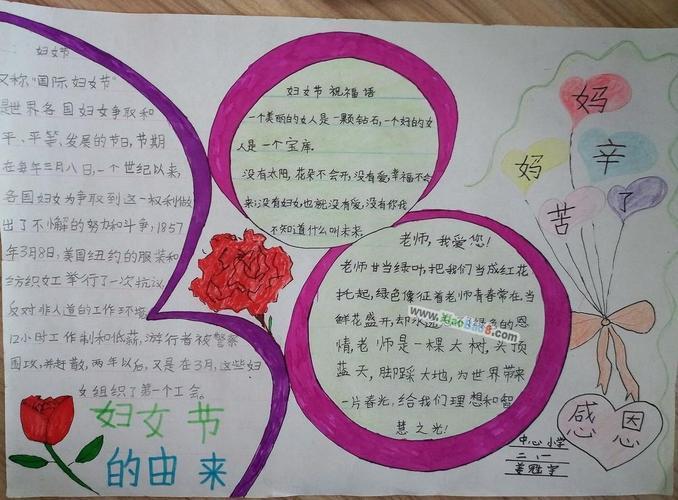 妇女节
又称"国际妇女节"
是世界各国妇女争取和
平、平等、发展的节日,节期
在每年三月八日,一个世纪以来,
各国妇女为争取到这一权利做
出了不懈的努力和斗争,1857
年3月8日,美国纽约的服装和
纺织女工举行了一次抗议,
反对非人道的工作环境,
12小时工作制和低薪,游行者被警察
围攻,并赶散,两年以后,又是在3月,这些妇
女组织了第一个工会。
妇女节
的由来
妇女节祝福语
一个美丽的女人是一颗钻石,一个好的女
人是一个宝库。
没有太阳,花朵不会开,没有爱,幸福不会
来,没有妇女,也就没有爱,没有你我
不知道什么叫未来。
老师,我爱您!
老师甘当绿叶,把我们当成红花
托起,绿色像征着老师青春常在,当
鲜花盛开,却永远 绿色的恩
情,老师是一棵大树,头顶
蓝天,脚踩大地,为世界带来
一片春光,给我们理想和智
慧之光!
妈
妈
辛
苦
了
感恩
中心小学
二、一
姜胜宇